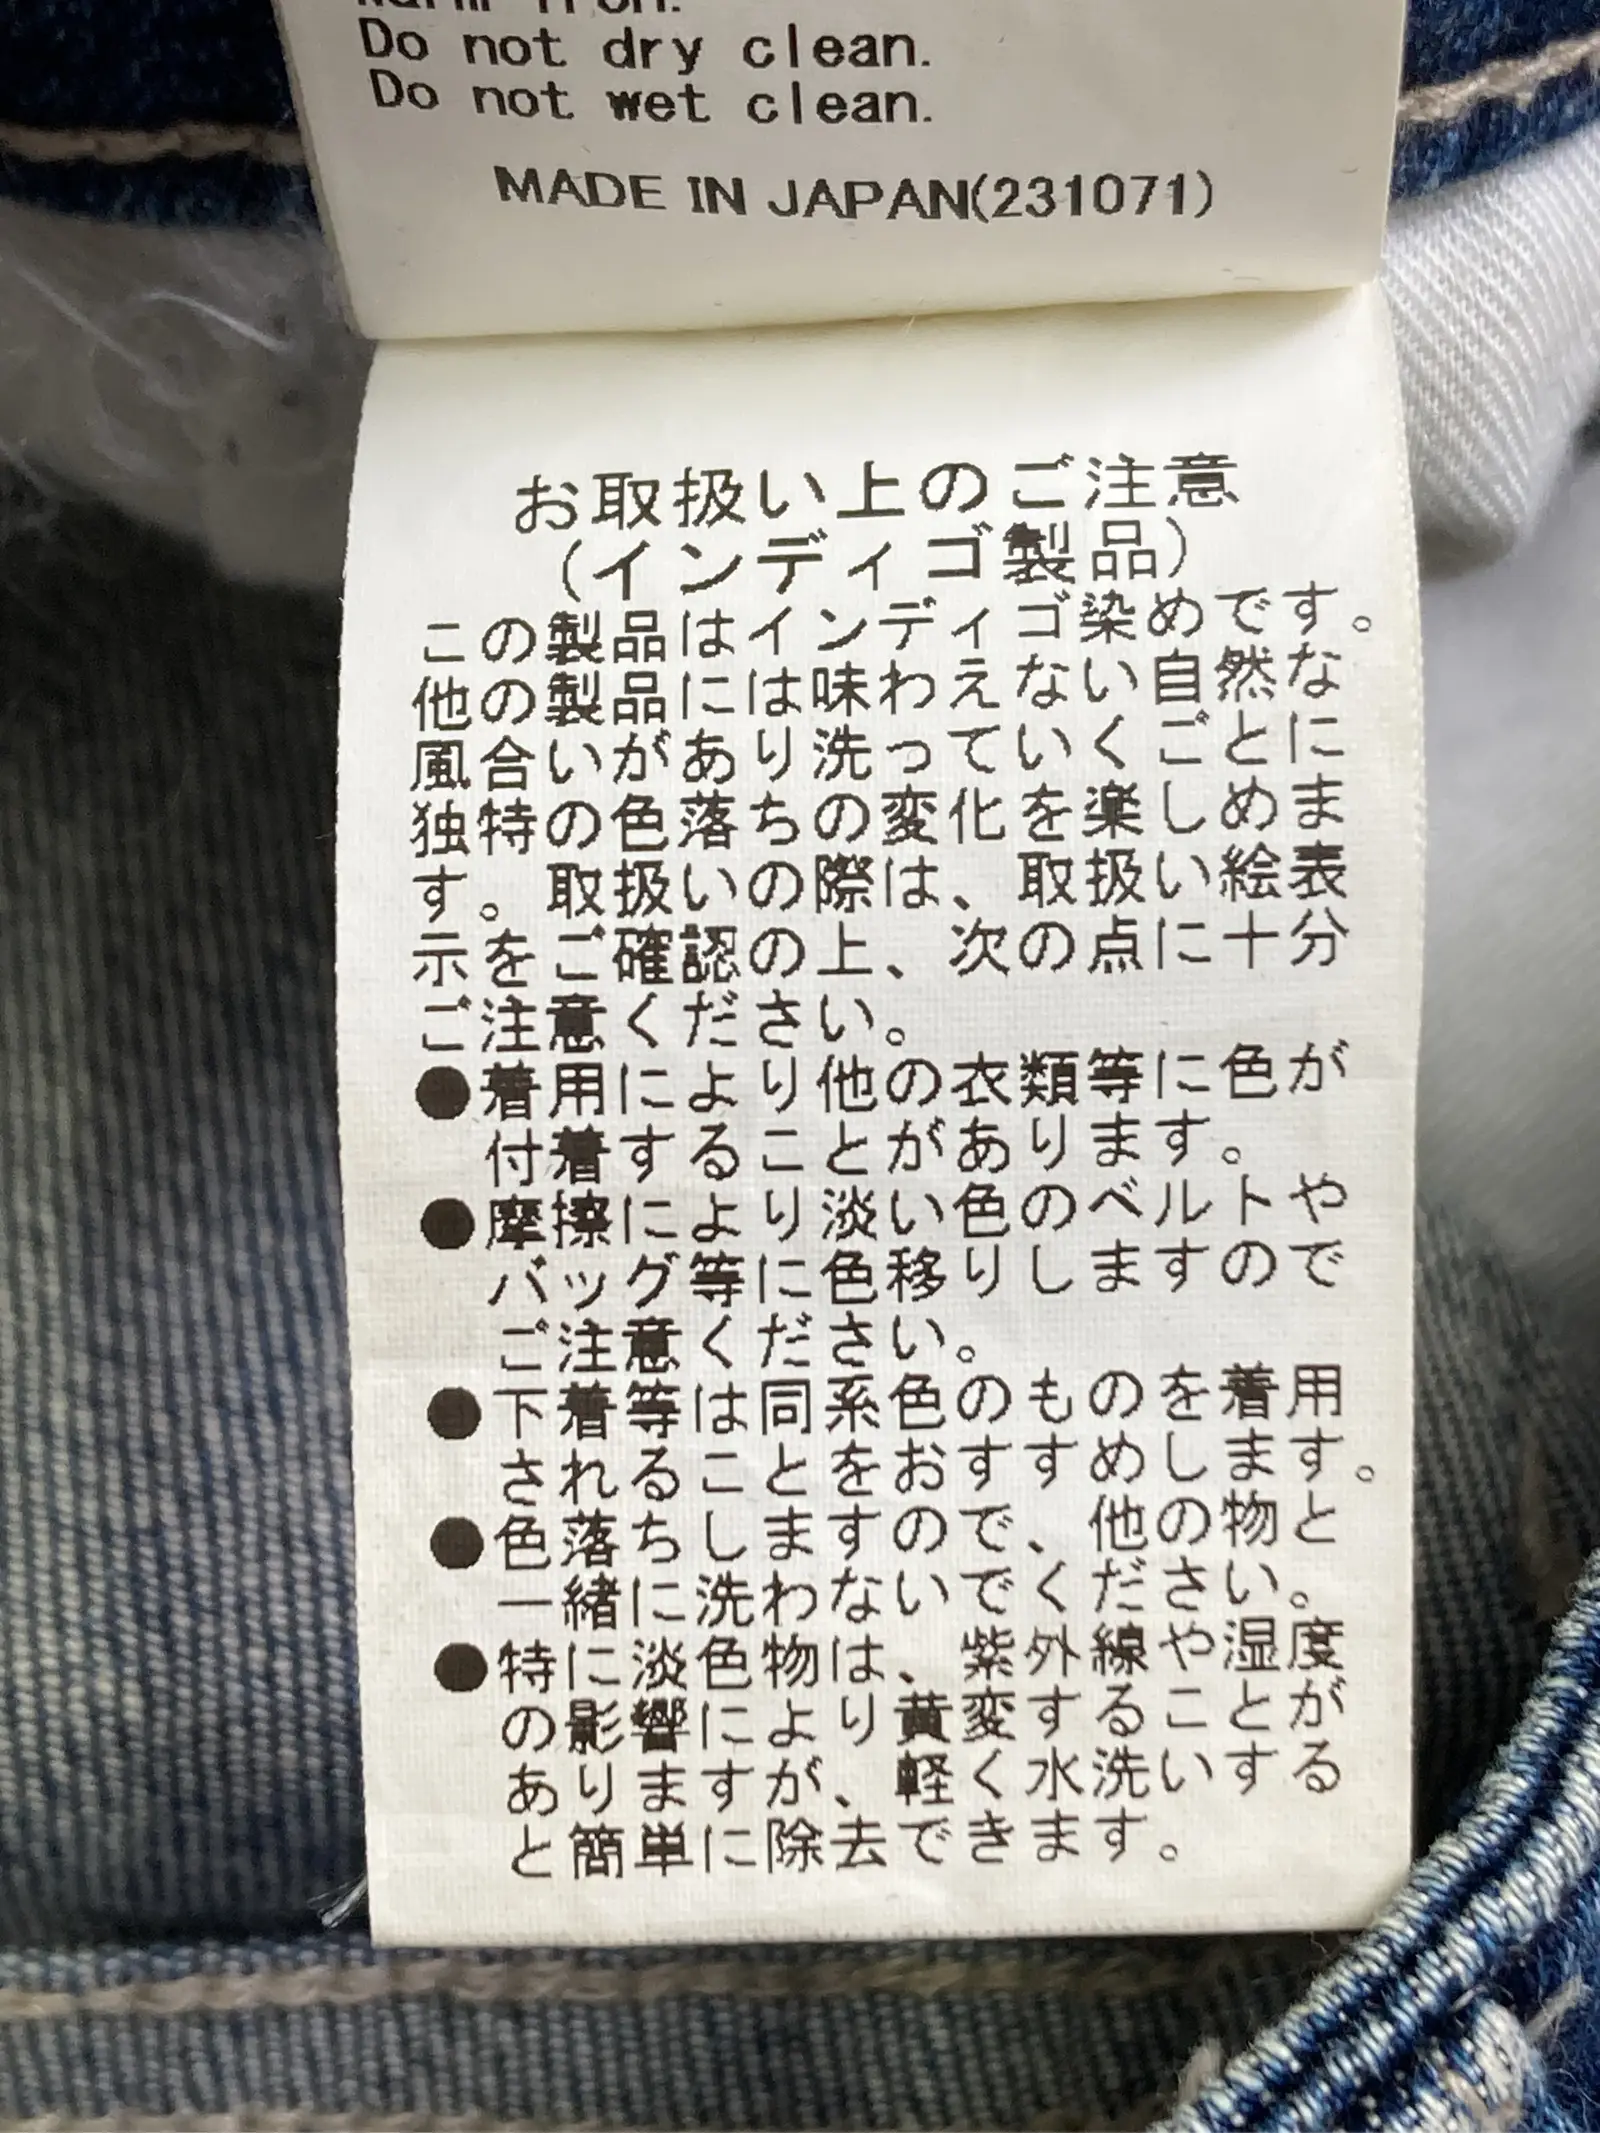 Warm iron.
Do not dry clean.
Do not wet clean.
MADE IN JAPAN(231071)
お取扱い上のご注意
(インディゴ製品)
この製品はインディゴ染めです。
他の製品には味わえない自然な
風合いがあり洗っていくごとに
独特の色落ちの変化を楽しめま
す。取扱いの際は、取扱い絵表
示をご確認の上、次の点に十分
ご注意ください。
●着用により他の衣類等に色が
付着することがあります。
●摩擦により淡い色のベルトや
バッグ等に色移りしますので
ご注意ください。
●下着等は同系色のものを着用
されることをおすすめします。
●色落ちしますので、他の物と
一緒に洗わないでください。
●特に淡色物は、紫外線や湿度
の影響により黄変することが
ありますが、軽く水洗いする
と簡単に除去できます。